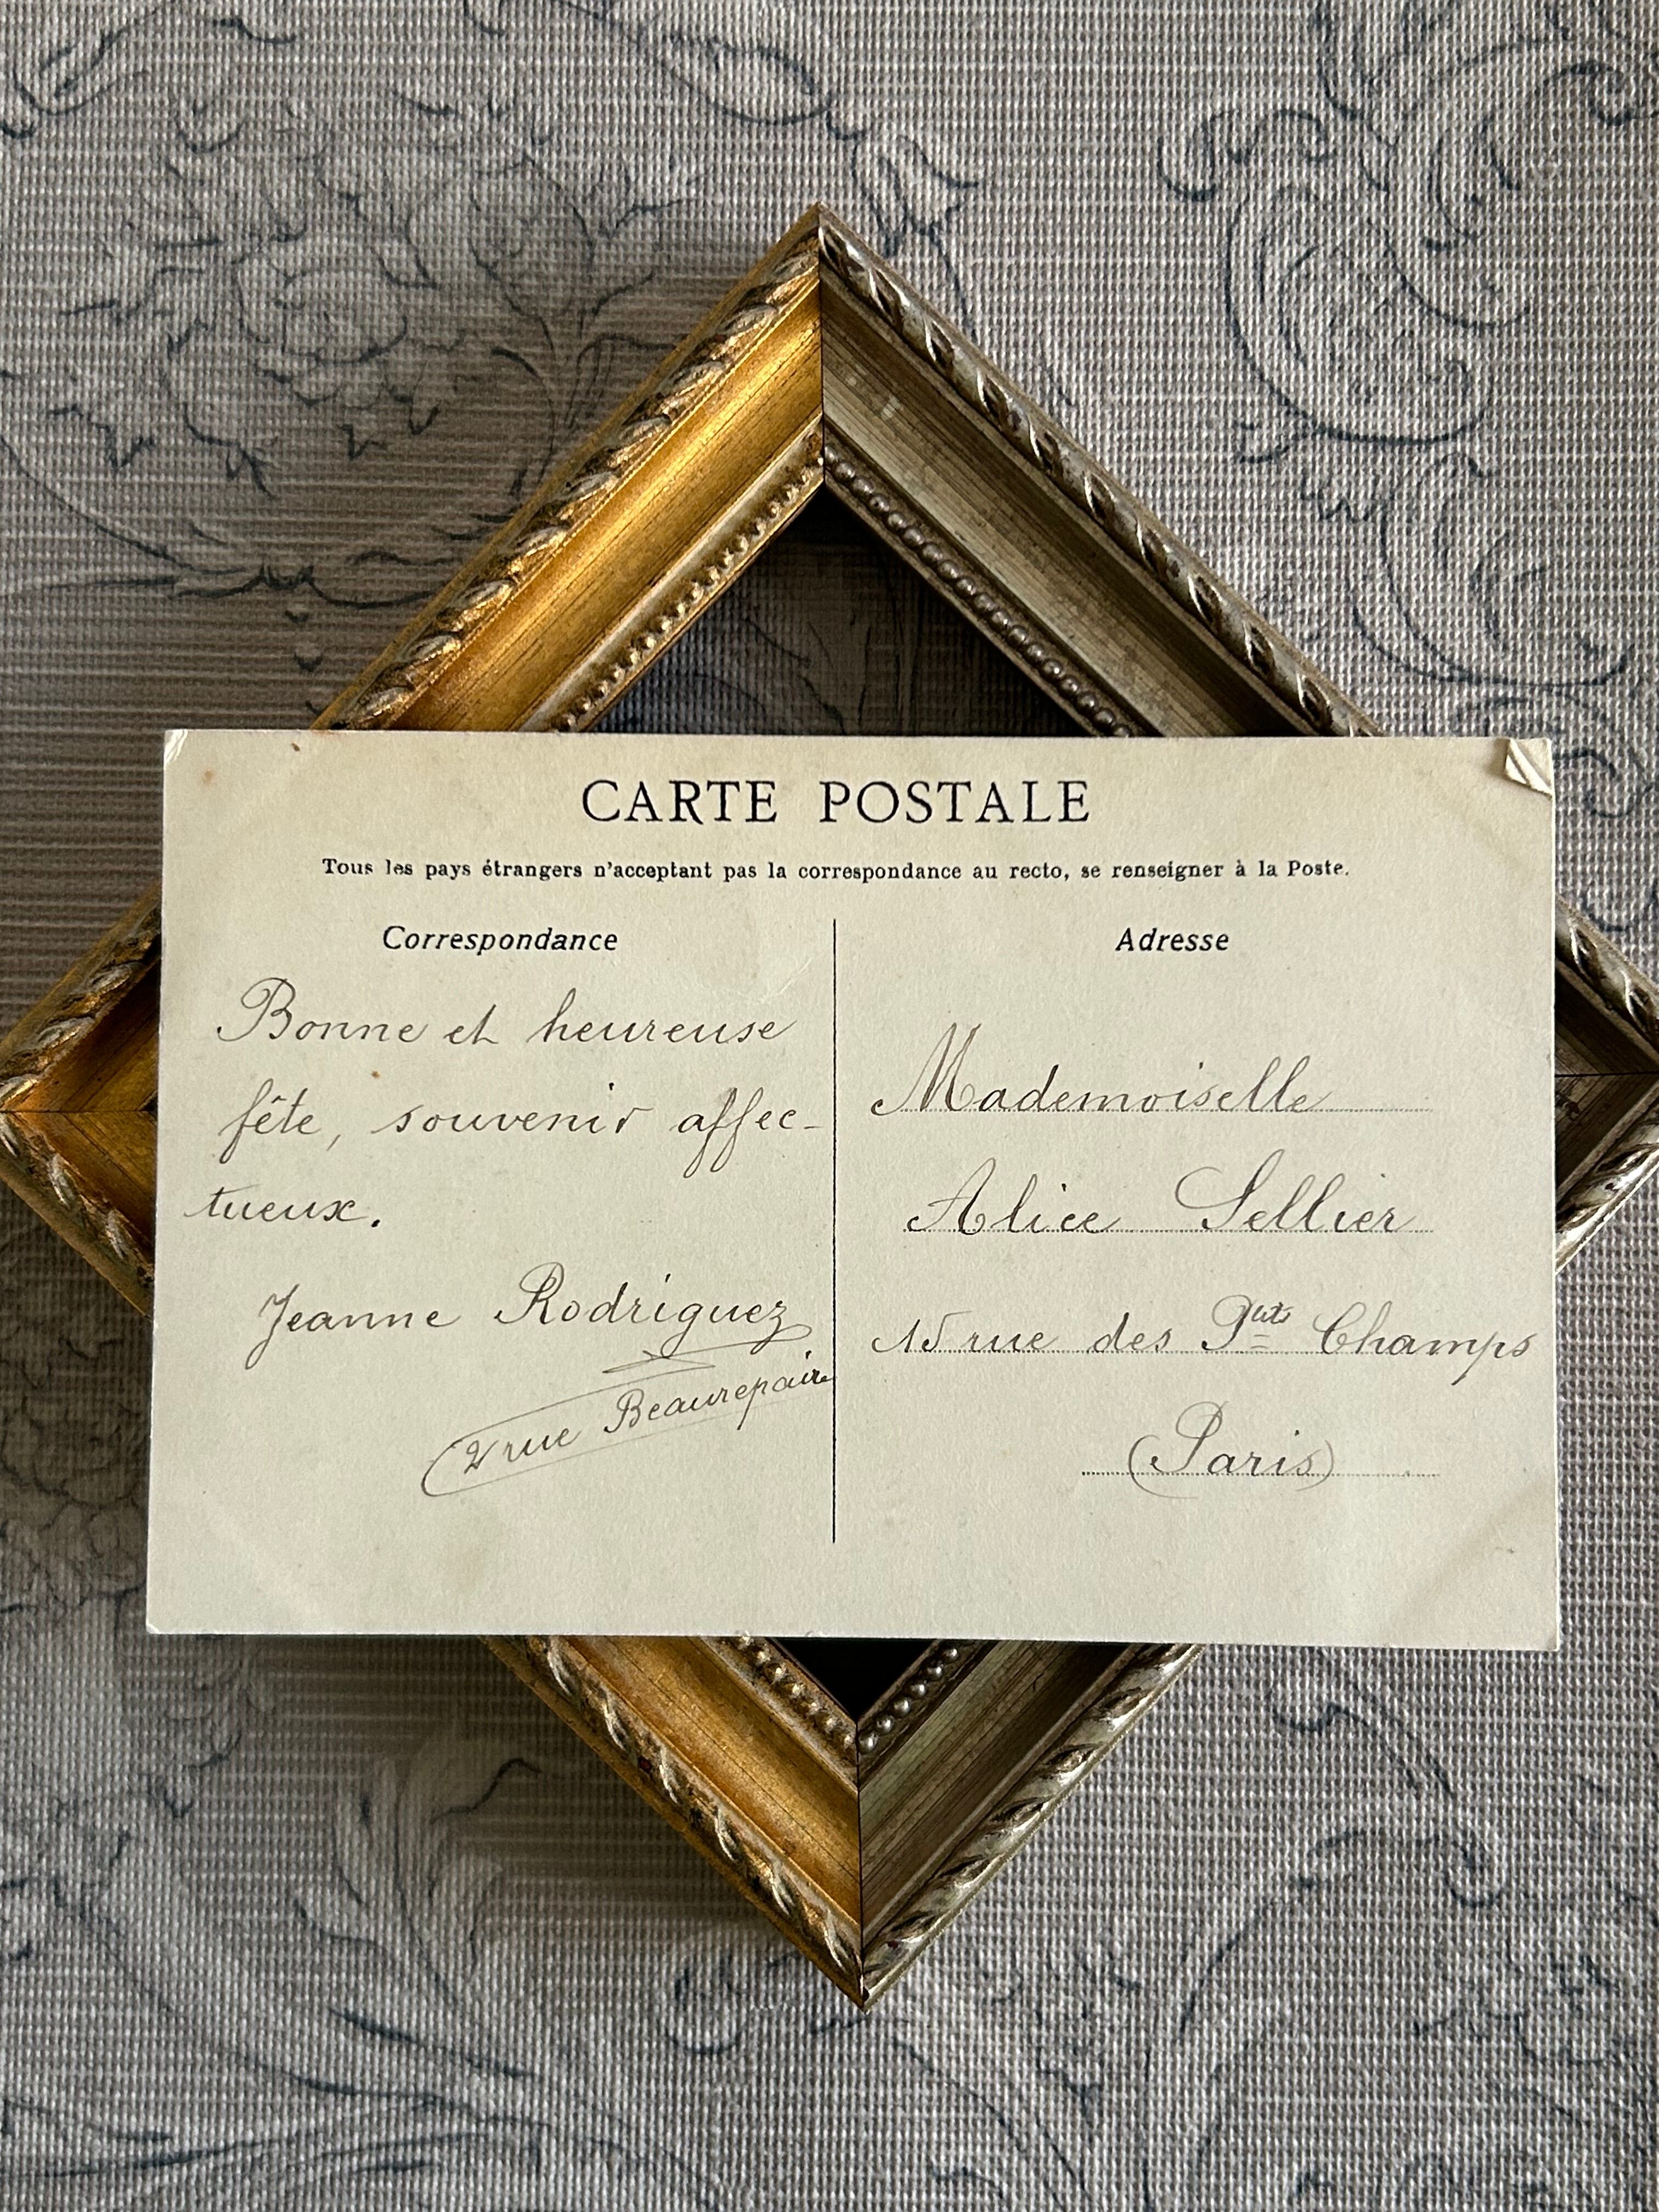 CARTE POSTALE
Tous les pays étrangers n'acceptant pas la correspondance au recto, se renseigner à la Poste.
Correspondance
Bonne et heureuse
fête, souvenir affec-
tueux.
Jeanne Rodriguez
(2 rue Beaurepaire
Adresse
Mademoiselle
Alice Sellier
15 rue des Ptes Champs
(Paris)